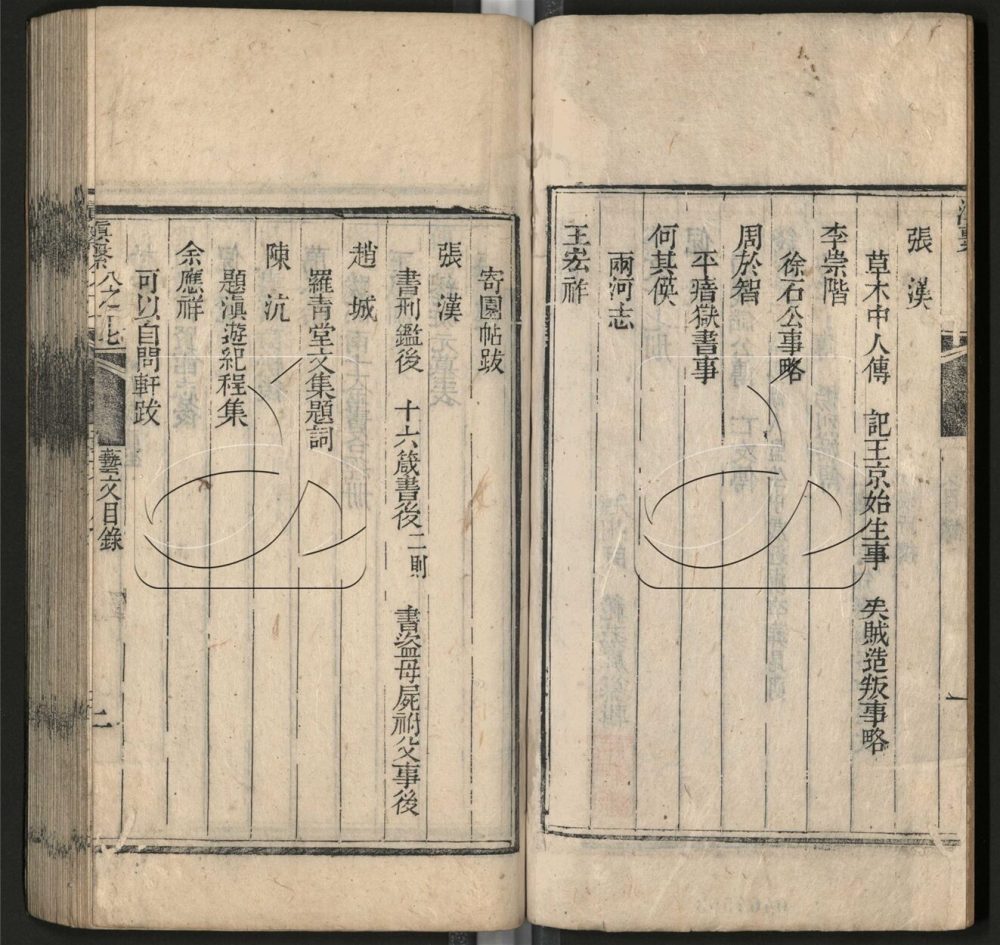 張漢
草木中人傳 記王京始生事 矣賊造叛事略
李崇階
徐石公事略
周於智
平瘖獄書事
何其偀
兩河志
王宏祚
寄園帖跋
張漢
書刑鑑後 十六箴書後二則 書盜母屍祔父事後
趙城
羅青堂文集題詞
陳沆
題滇遊紀程集
余應祥
可以自問軒跋
滇繫 八之七 藝文目錄 二